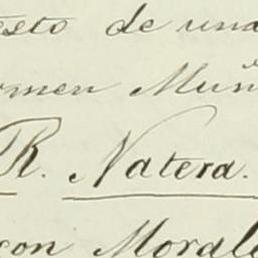 esto de una
omen Muñ
R. Natera.
con Morale